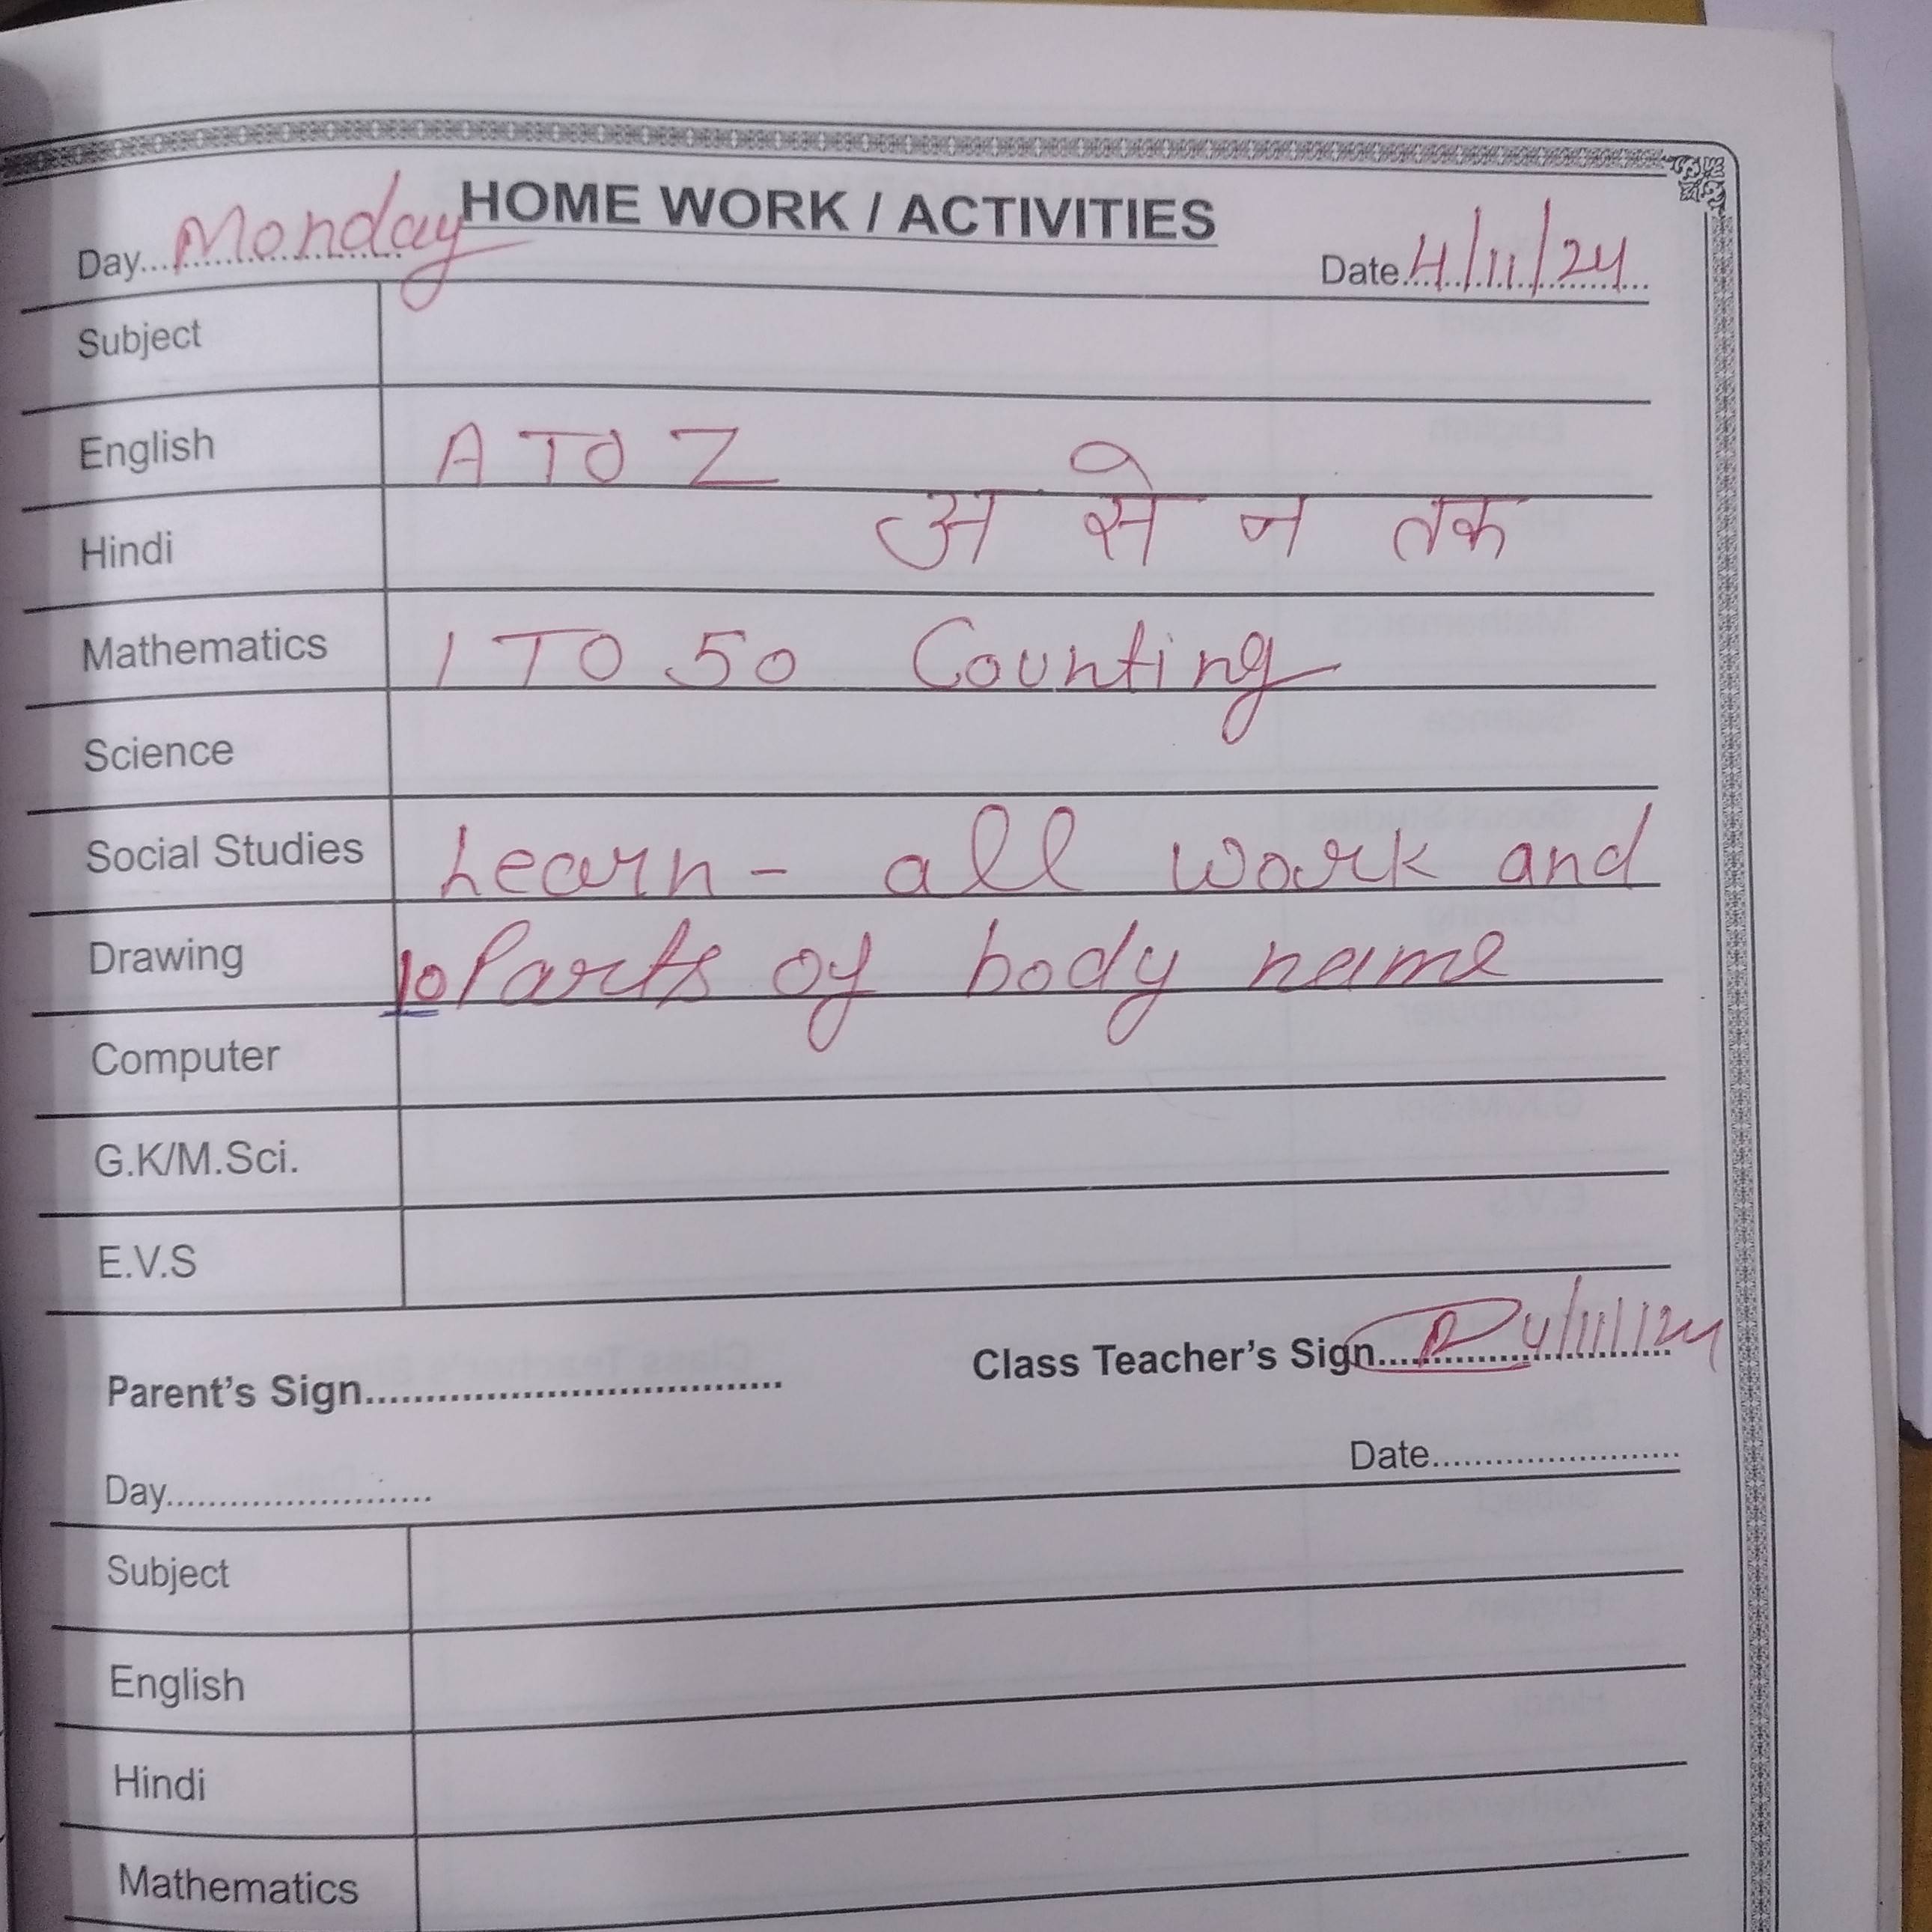 HOME WORK / ACTIVITIES
Day... Monday
Date 4/11/24
Subject
English A TO Z
Hindi अ से न तक
Mathematics 1 TO 50 Counting
Science
Social Studies Learn - all work and
Drawing 10 Parts of body name
Computer
G.K/M.Sci.
E.V.S
Parent's Sign.......... Class Teacher's Sign.......... 4/11/24
Day.......... Date..........
Subject
English
Hindi
Mathematics